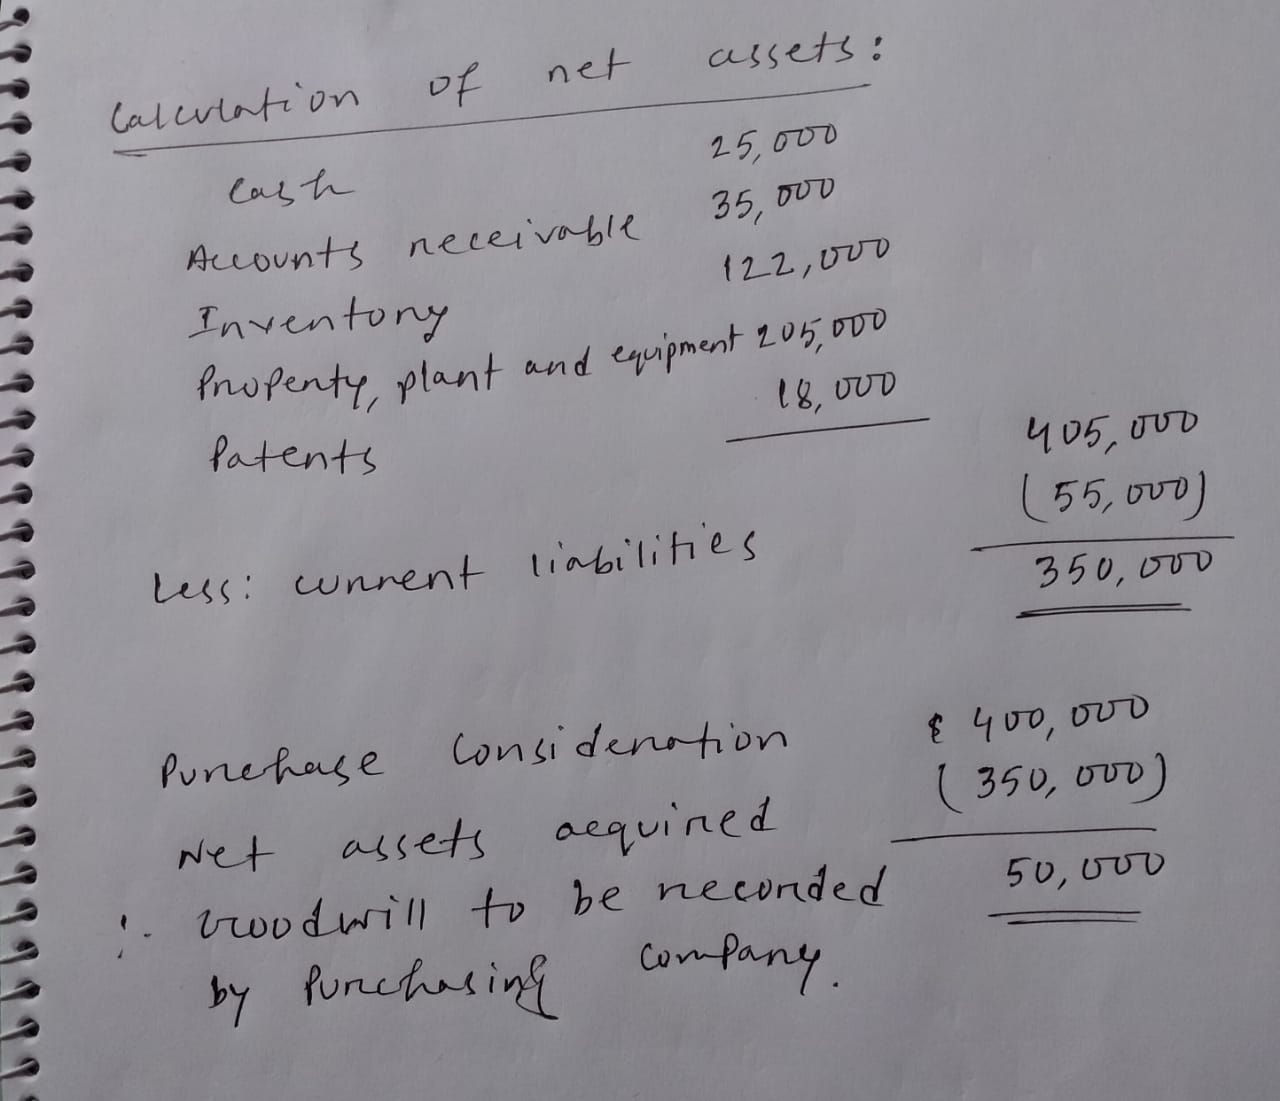 Calculation of net assets:
Cash 25,000
Accounts receivable 35,000
Inventory 122,000
Property, plant and equipment 205,000
Patents 18,000
405,000
Less: current liabilities (55,000)
350,000
Purchase consideration $ 400,000
Net assets acquired (350,000)
∴ Goodwill to be recorded 50,000
by purchasing company.